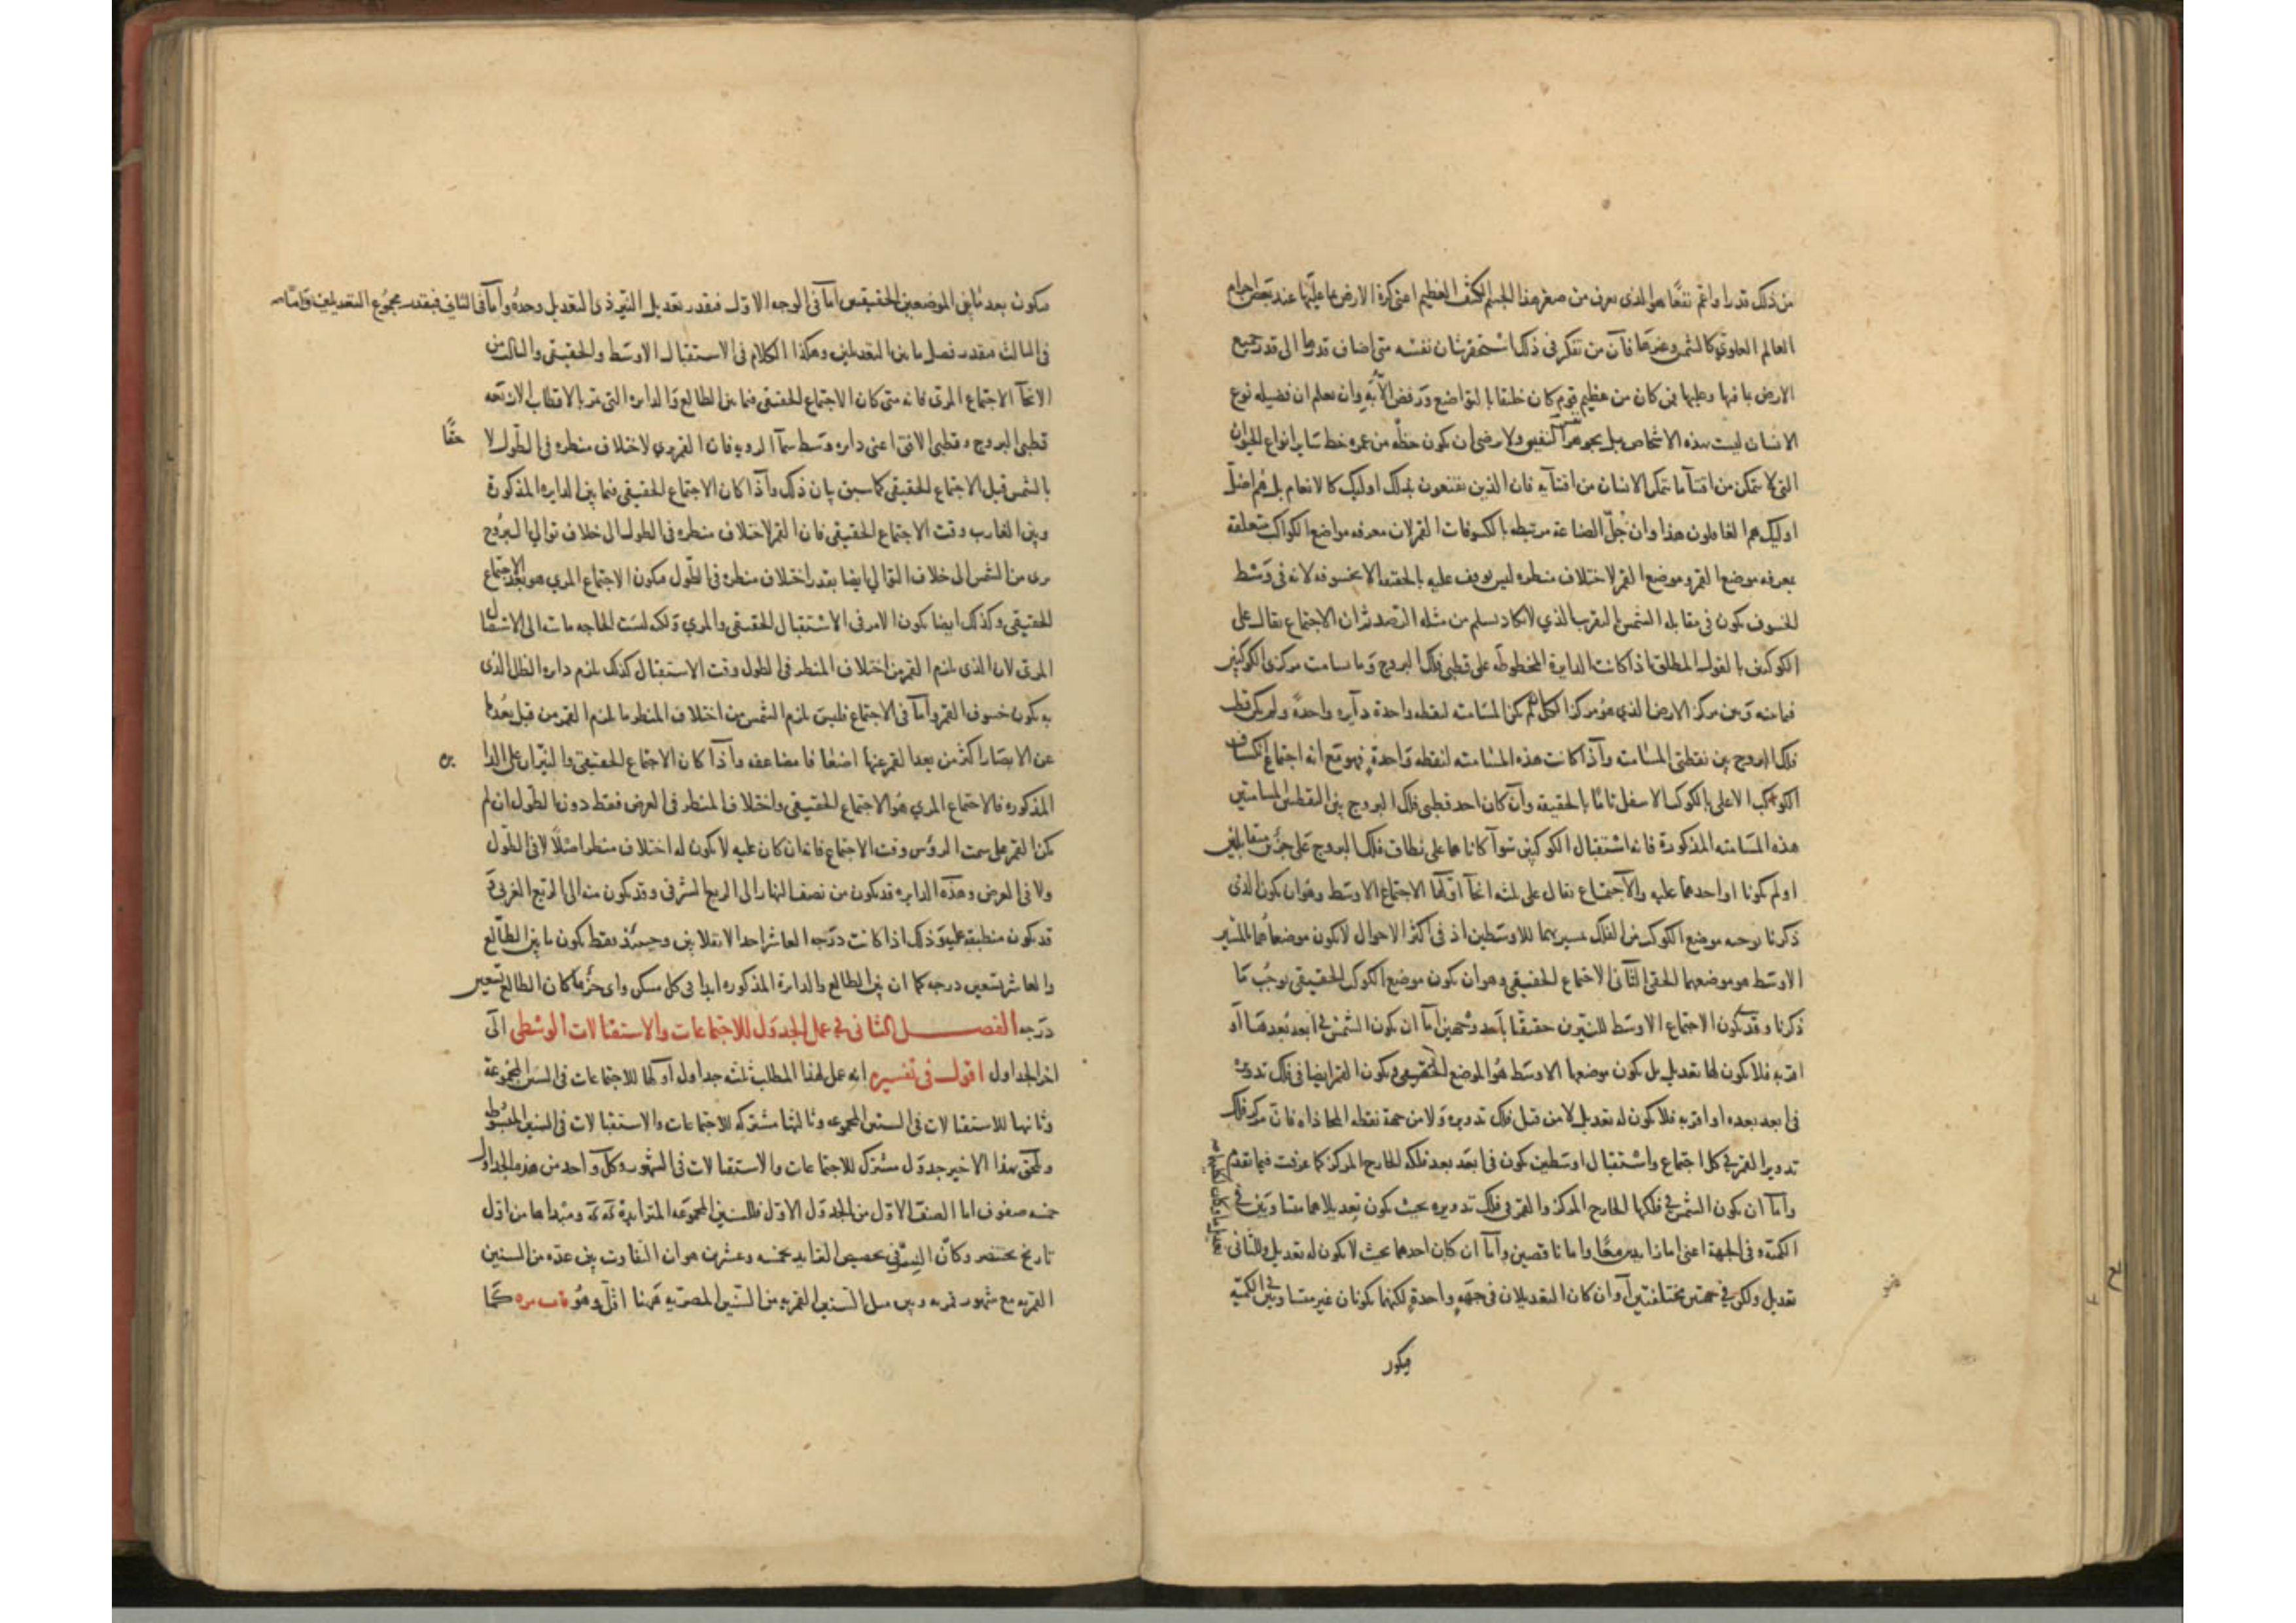 من ذلك قدرا واعم نفعًا هو الذى يعرف من صغر هذا الجسم الكثيف العظيم اعنى كرة الارض بما عليها عند بعض اجرام
العالم العلوي كالشمس وغيرها فآن من تفكر فى ذلك استحقر شان نفسه متى اضاف قدرها الى قدر جميع
الارض بما فيها وعليها فمن كان من عظيم قوم كان خليقا بالتواضع ورفض الأبّهة وان يعلم ان فضيله نوع
الانسان ليست بهذه الاشخاص بل بجوهر النفس ولا يرضى ان يكون حظه من عمره حظ ساير انواع الحيوان
التى لا تتمكن من اقتنآ ما يتمكن الانسان من اقتنآيه فان الذين يقنعون بذلك اوليك كالانعام بل هم اضلّ
اوليك هم الغافلون هذا وان جُلّ الصناعة مرتبطه بالكسوفات القمرلان معرفه مواضع الكواكب متعلقة
بمعرفه موضع القمر وموضع القمر لاختلاف منظره ليس يوقف عليه بالحقيقه الا بخسوفه لانه فى وسَط
الخسوف يكون فى مقابله الشمس بالتقريب الذي لا يكاد يسلم من مثله الرّصد ثم ان الاجتماع يقال على
الكوكبين بالقول المطلق اذا كانت الدايرة المخطوطه على قطبى فلك البروج وما يسامت مركزى الكوكبين
فيما بينه وبين مركز الارض الذي هو مركز الكل لم تكن المسامته لنقطه واحدة دآيره واحدة ولم يكن قطب
فلك البروج بين نقطتى المسامته وآذا كانت هذه المسامته لنقطه واحدة فهو مع انه اجتماع انكساف
الكوكب الاعلى بالكوكب الاسفل تامّا بالحقيقه وآن كان احد قطبى فلك البروج بين النقطتين المسامتتين
هذه المسامته المذكورة فانه استقبال الكوكبين سوآ كانا هما على نطاق فلك البروج على جزئين متقابلين
او لم يكونا او احدهما عليه والآجتماع يقال على ثلثه انحآ اوّلها الاجتماع الاوسَط وهوان يكون الذى
ذكرنا يوجبه موضع الكوكب من الفلك بمسيريهما للاوسَطين اذ فى اكثر الاحوال لا يكون موضعاهما بالمسير
الاوسَط هو موضعهما الحقى الثانى الاجتماع الحقيقى وهوان يكون موضع الكوكب الحقيقى يوجب ما
ذكرنا وقد يكون الاجتماع الاوسَط للنيّرين حقيقيّا بآحد وجهين آما ان يكون الشمس فى ابعد بعدها آو
اقربه فلا يكون لها تعديل بل يكون موضعها الاوسَط هو الموضع الحقيقى ويكون القمر ايضا فى فلك تدويره
فى ابعد بعده او اقربه فلا يكون له تعديل لا من قبل فلك تدويره ولا من جهة نقطه المحاذاه فان مركز فلك
تدوير القمر فى كل اجتماع واستقبال اوسَطين يكون فى ابعد بعد فلكه الخارج المركز كما عرفت فيما تقدم
وآما ان يكون الشمس فى فلكها الخارج المركز والقمر فى فلك تدويره بحيث يكون تعديلاهما متساويين فى
الكميّه وفى الجهة اعنى اما زايدين معًا واما ناقصين وآما ان كان احدهما بحيث لا يكون له تعديل وللثانى
تعديل ولكن فى جهتين مختلفتين آو ان كان التعديلان فى جهة واحدة لكنهما يكونان غير متساويين فى الكميّه
فيكون
يكون بعد ما بين الموضعين الحقيقيين امآ فى الوجه الاوّل فبقدر تعديل النيّر ذى التعديل وحده وامآ فى الثانى فبقدر مجموع التعديلين وامّا
فى الثالث فبقدر فصل ما بين التعديلين وهكذا الكلام فى الاستقبال الاوسَط والحقيقى والثالث من
الانحآ الاجتماع المرئى فانه متى كان الاجتماع الحقيقى فيما بين الطالع والدايره التى تمر بالاقطاب الاربعه
قطبى البروج وقطبى الافق اعنى دايره وسَط سمآ الرويه فان القمر يرى لاختلاف منظره فى الطول لا حقّا
بالشمس قبل الاجتماع الحقيقى كما سبق بيان ذلك وآذا كان الاجتماع الحقيقى فيما بين الدايره المذكورة
وبين الغارب وقت الاجتماع الحقيقى فان القمر لاختلاف منظره فى الطول الى خلاف توالى البروج
يرى من الشمس الى خلاف التوالى ايضا بقدر اختلاف منظره فى الطول فيكون الاجتماع المرى هو بعد الاجتماع
الحقيقى وكذلك ايضا يكون الامر فى الاستقبال الحقيقى والمرى ولكنه ليست الحاجه ماسه الى الاستقبال
المرئى لان الذى يلزم القمر من اختلاف المنظر فى الطول وقت الاستقبال كذلك يلزم دايره الظل الذى
به يكون خسوف القمر وآما فى الاجتماع فليس يلزم الشمس من اختلاف المنظر ما يلزم القمر من قبل بعدها
عن الابصار اكثر من بعد القمر عنها اضعافا مضاعفه وآذا كان الاجتماع الحقيقى والنيّران على الدا يره
المذكوره فالاجتماع المرى هو الاجتماع الحقيقى واختلاف المنظر فى العرض فقط دون الطول ان لم
يكن القمر على سمت الروس وقت الاجتماع فانه ان كان عليه لا يكون له اختلاف منظر اصلًا لا فى الطول
ولا فى العرض وهذه الدايره قد يكون من نصف النهار الى الربع الشرقى وقد يكون منه الى الربع الغربى و
قد يكون منطبقه عليه وذلك اذا كانت درجه العاشر احد الانقلابين وحينئذ فقط يكون ما بين الطالع
والعاشر تسعين درجه كما ان بين الطالع والدايرة المذكوره ابدا فى كل مسكن واى جزء ما كان الطالع تسعين
درجه الفصل الثانى فى عمل الجدول للاجتماعات والاستقبالات الوسطى الى
اخر الجداول اقول فى تفسيره انه عمل لهذا المطلب ثلثه جداول آوّلها للاجتماعات فى السنين المجموعة
وثانيها للاستقبالات فى السنين المجموعه وثالثها مشتركه للاجتماعات والاستقبالات فى السنين المبسوطه
ويلحق بهذا الاخير جدول مشترك للاجتماعات والاستقبالات فى الشهور وكل واحد من هذه الجداول
خمسه صفوف اما الصف الاول من الجدول الاول فللسنين المجموعه المتزايدة كه كه ومبداها من اول
تاريخ بختنصر وكانّ السبب فى تخصيص التزايد بخمسه وعشرين هو ان التفاوت بين عدّه من السنين
القمريه مع شهور قمريه وبين مثل السنين القمريه من السنين المصريه فهنا اقل وهو كما